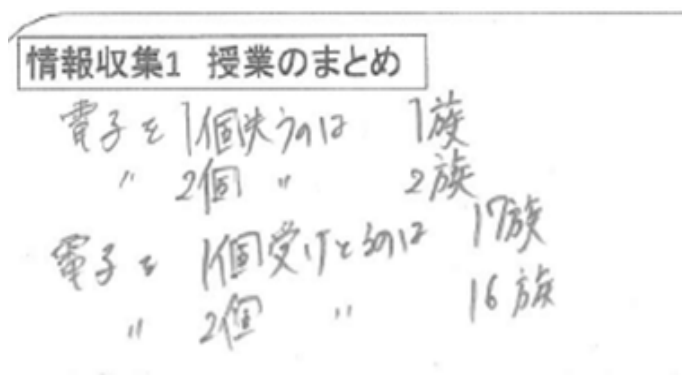 情報収集1 授業のまとめ
電子を1個失うのは 1族
〃 2個 〃 2族
電子を1個受けとるのは 17族
〃 2個 〃 16族